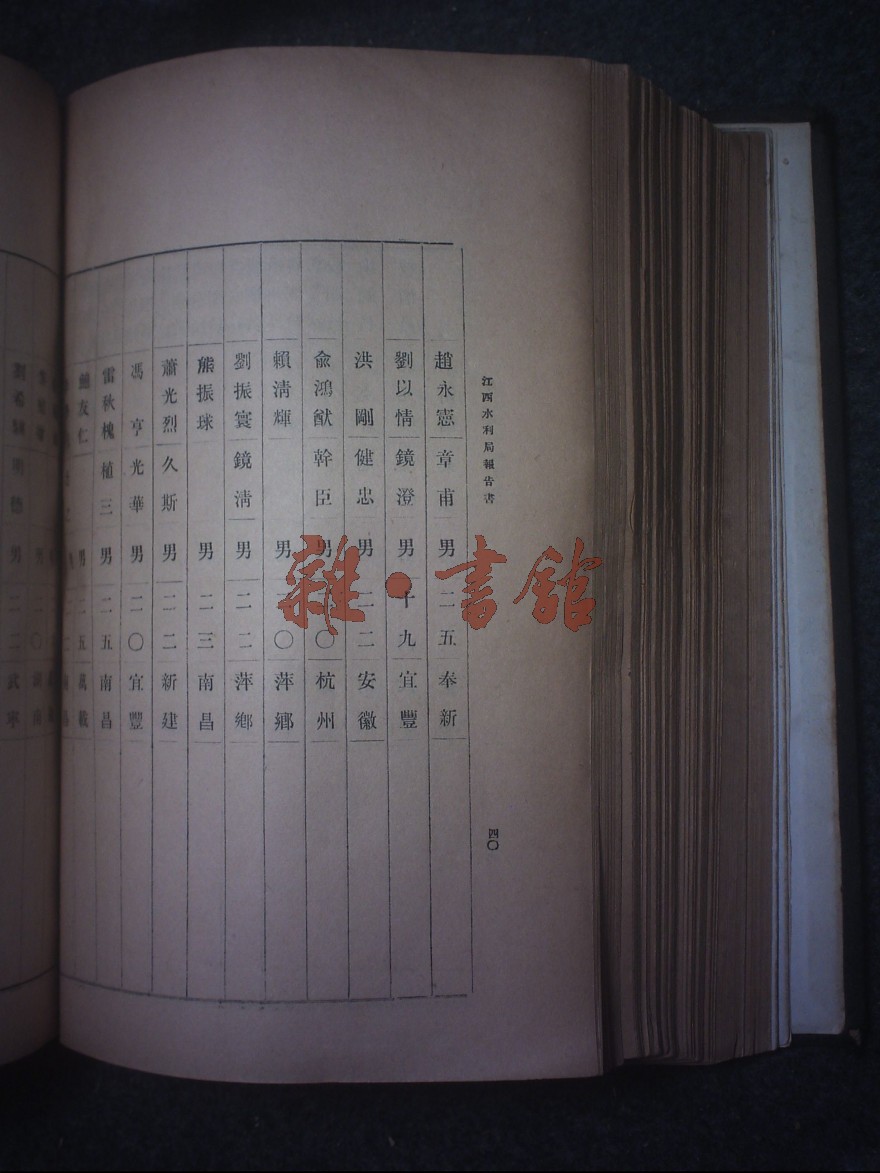 江西水利局報告書
四〇
趙永憲 章甫 男 二五 奉新
劉以情 鏡澄 男 十九 宜豐
洪剛 健忠 男 二二 安徽
兪鴻猷 幹臣 男 〇 杭州
賴淸輝 男 〇 萍鄉
劉振寰 鏡淸 男 二二 萍鄉
熊振球 男 二三 南昌
蕭光烈 久斯 男 二二 新建
馮亨 光華 男 二〇 宜豐
雷秋槐 植三 男 二五 南昌
友仁 男 二五 萬載
明德 男 二二 武寧
雜·書館